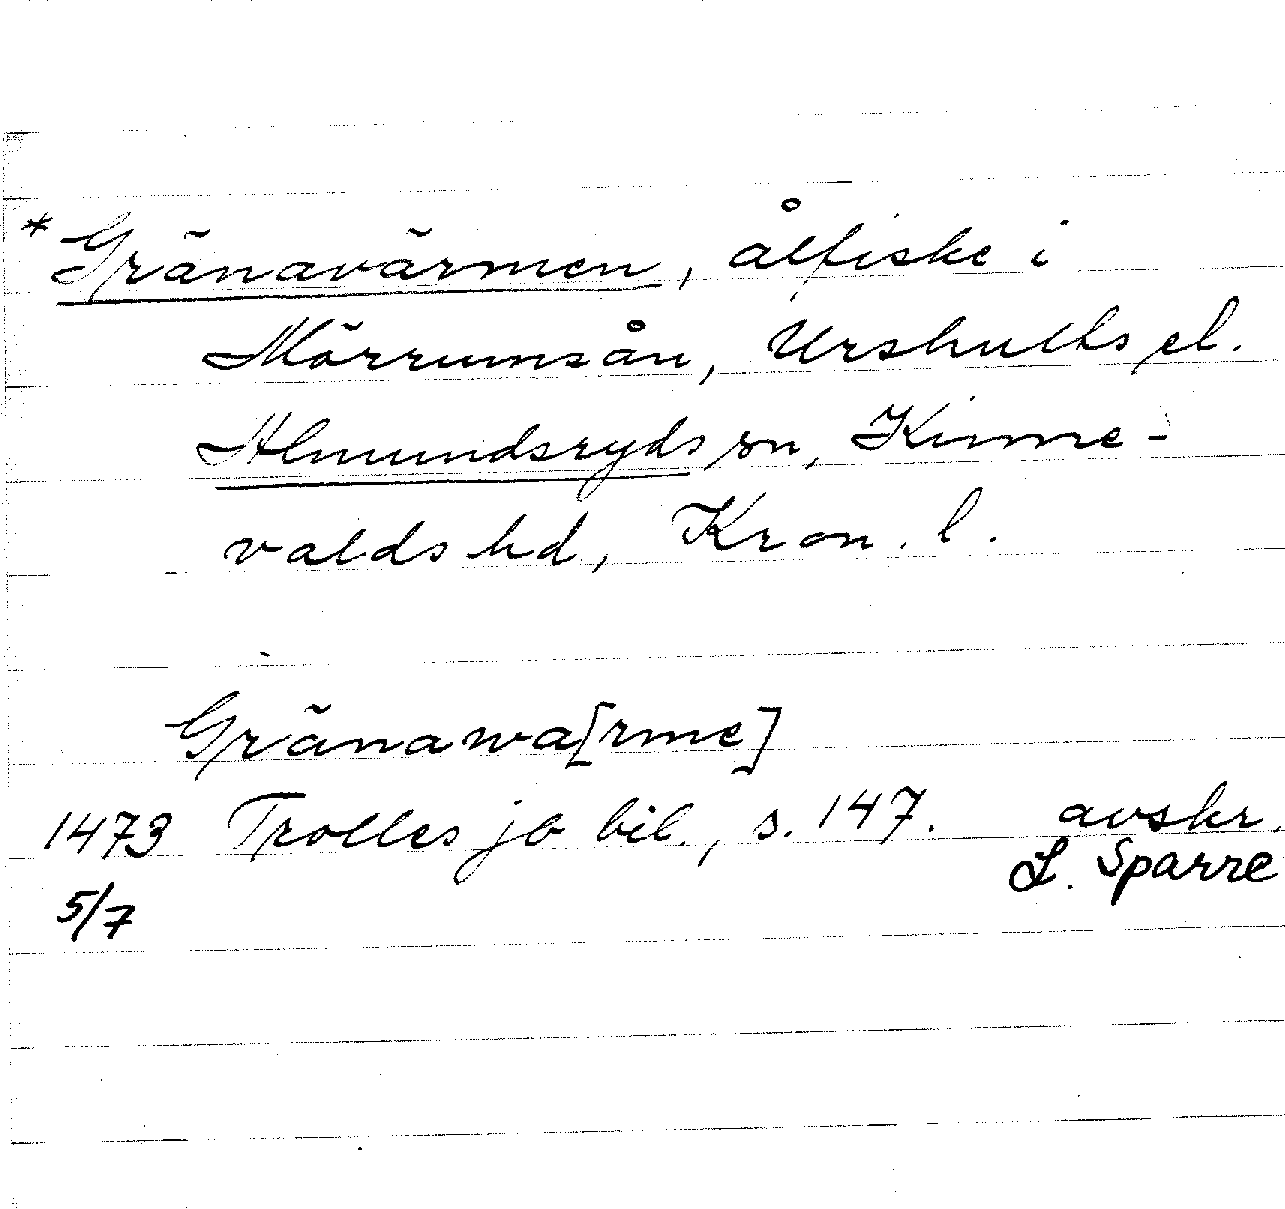 * Gränavärmen, ålfiske i
Mörrumsån, Urshults el.
Almundsryds sn, Kinne-
valds hd, Kron. l.
Gränawa[rme]
1473 Trolles jb bil., s. 147. avskr.
5/7 L. Sparre